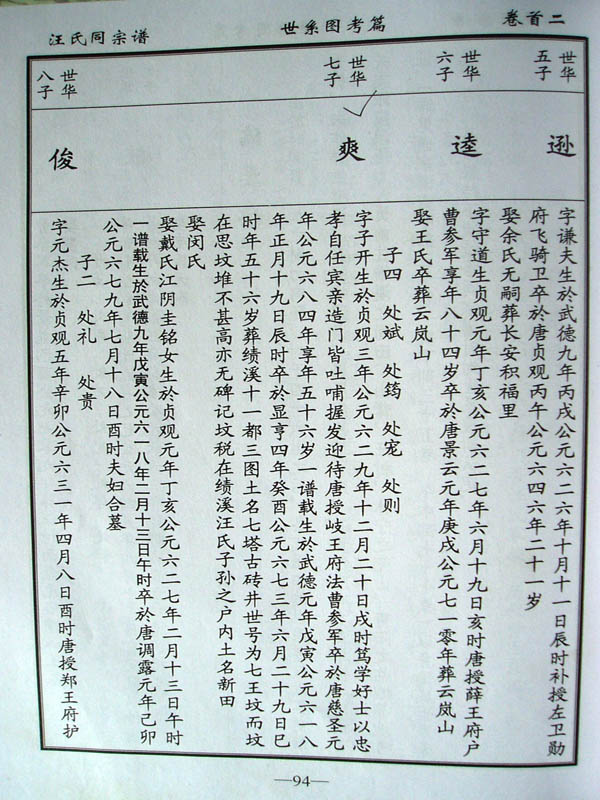 卷首二
世系图考篇
汪氏同宗谱
世华
五子
世华
六子
世华
七子
世华
八子
逊
逵
爽
俊
字谦夫生於武德九年丙戌公元六二六年十月十一日辰时补授左卫勋
府飞骑卫卒於唐贞观丙午公元六四六年二十一岁
娶余氏无嗣葬长安积福里
字守道生贞观元年丁亥公元六二七年六月十九日亥时唐授薛王府户
曹参军享年八十四岁卒於唐景云元年庚戌公元七一零年葬云岚山
娶王氏卒葬云岚山
子四 处斌 处筠 处宠 处则
字子开生於贞观三年公元六二九年十二月二十日戌时笃学好士以忠
孝自任宾亲造门皆吐哺握发迎待唐授岐王府法曹参军卒於唐慈圣元
年公元六八四年享年五十六岁一谱载生於武德元年戊寅公元六一八
年正月十九日辰时卒於显亨四年癸酉公元六七三年六月二十九日巳
时年五十六岁葬绩溪十一都三图土名七塔古砖井世号为七王坟而坟
在思坟堆不甚高亦无碑记坟税在绩溪汪氏子孙之户内土名新田
娶闵氏
娶戴氏江阴圭铭女生於贞观元年丁亥公元六二七年二月十三日午时
一谱载生於武德九年戊寅公元六一八年二月十三日午时卒於唐调露元年己卯
公元六七九年七月十八日酉时夫妇合墓
子二 处礼 处贵
字元杰生於贞观五年辛卯公元六三一年四月八日酉时唐授郑王府护
—94—